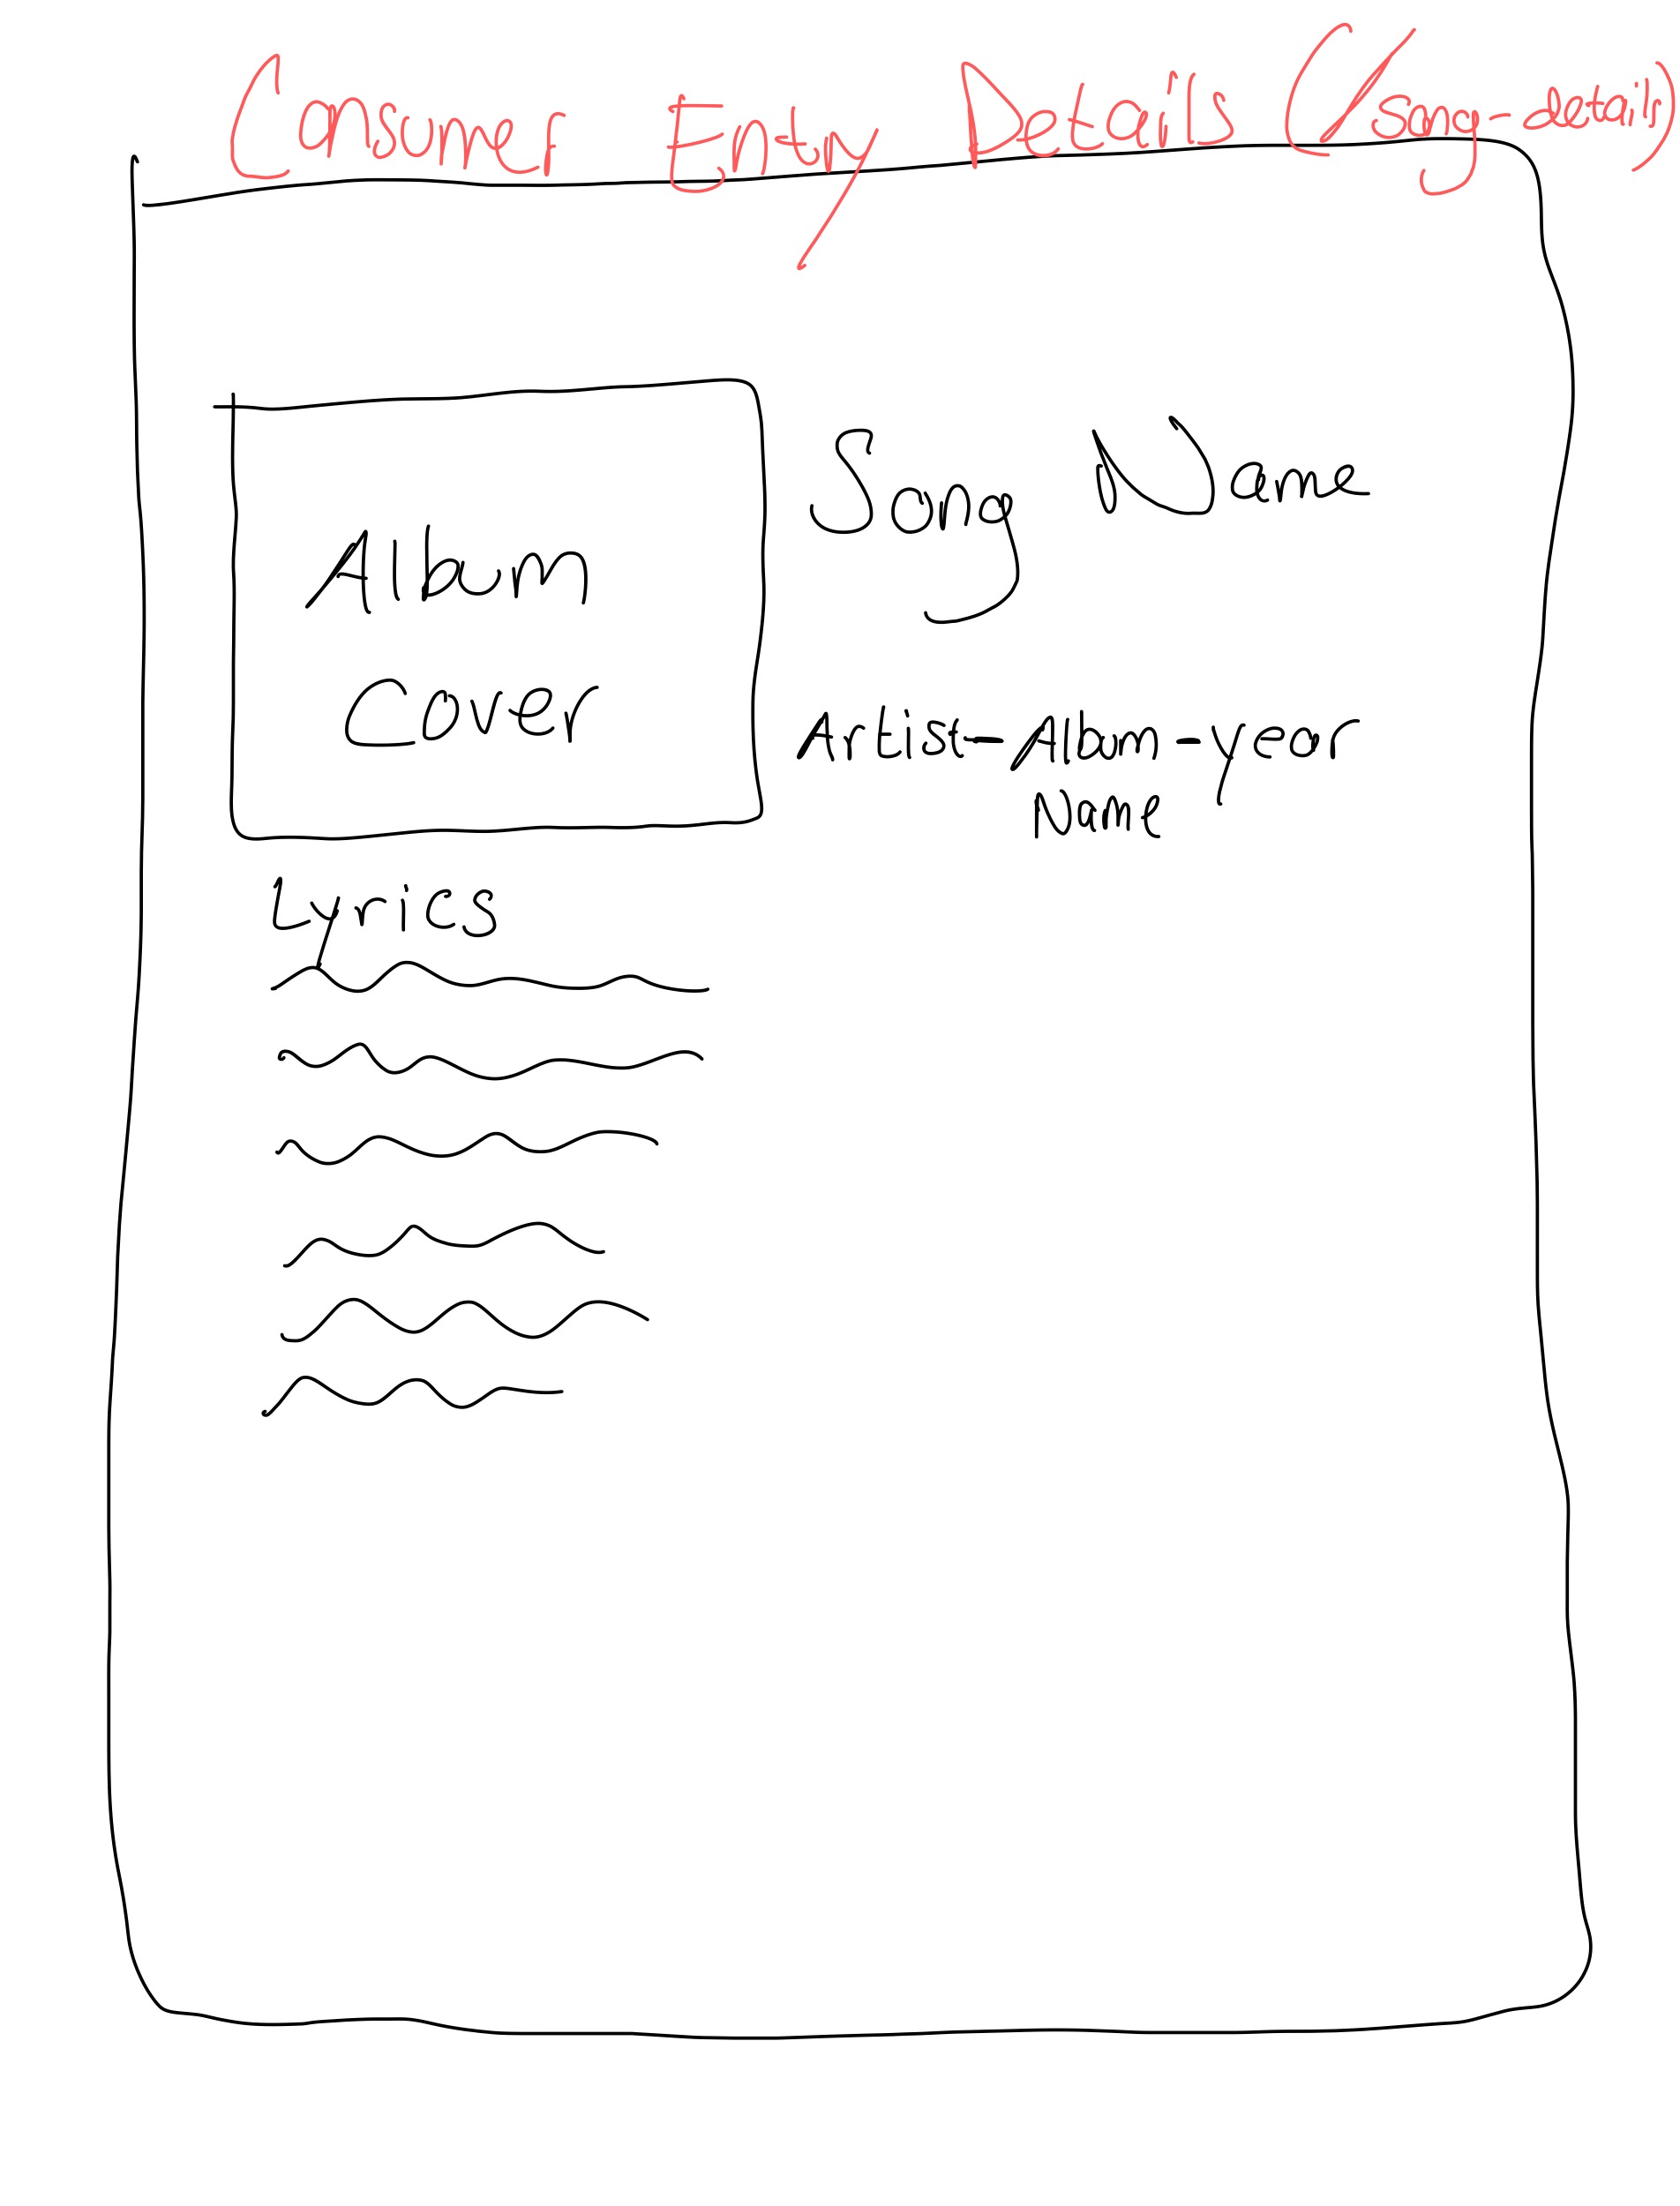 Consumer Entity Details (/song-details)
Album
Cover
Song Name
Artist - Album - Year
Name
Lyrics